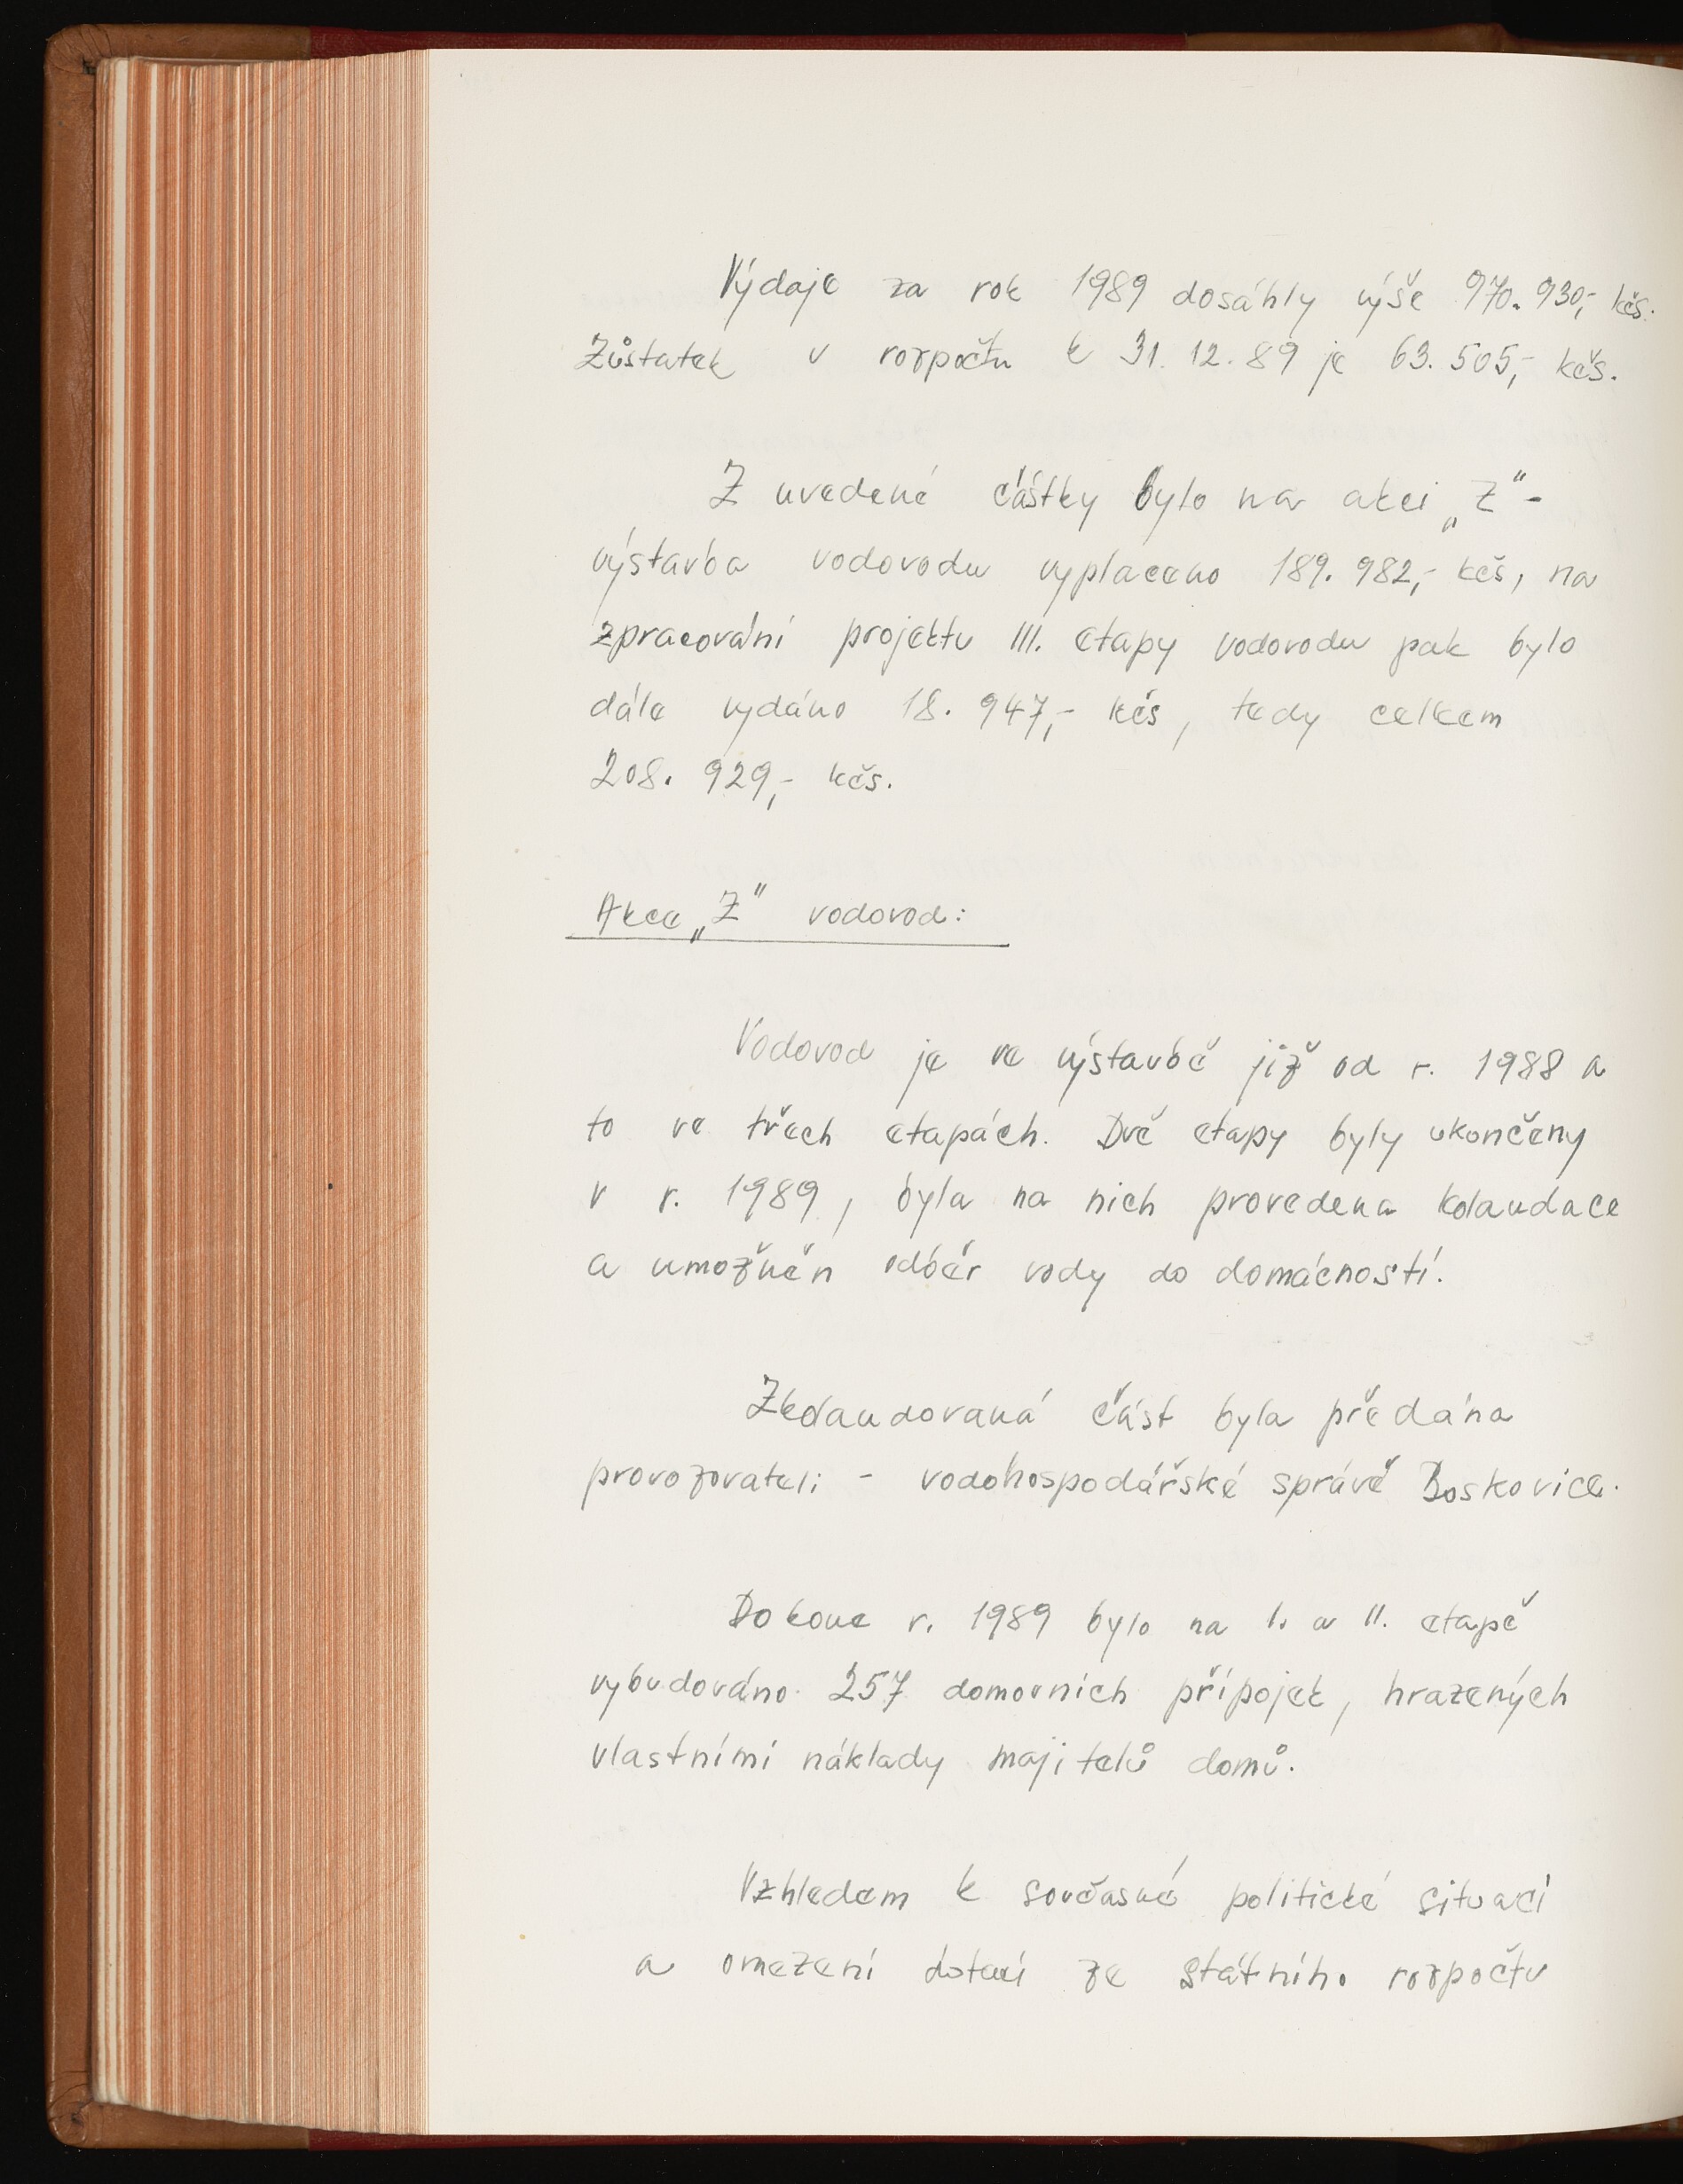 Výdaje za rok 1989 dosáhly výše 970.930,- kčs.
Zůstatek v rozpočtu k 31.12.89 je 63.505,- kčs.
Z uvedené částky bylo na akci „Z"-
výstavba vodovodu vyplaceno 189.982,- kčs, na
zpracování projektu III. etapy vodovodu pak bylo
dále vydáno 18.947,- kčs, tedy celkem
208.929,- kčs.
Akce „Z" vodovod:
Vodovod je ve výstavbě již od r. 1988 a
to ve třech etapách. Dvě etapy byly ukončeny
v r. 1989, byla na nich provedena kolaudace
a umožněn odběr vody do domácností.
Zkolaudovaná část byla předána
provozovateli - vodohospodářské správě Boskovice.
Do konce r. 1989 bylo na I. a II. etapě
vybudováno 257 domovních přípojek, hrazených
vlastními náklady majitelů domů.
Vzhledem k současné politické situaci
a omezení dotací ze státního rozpočtu